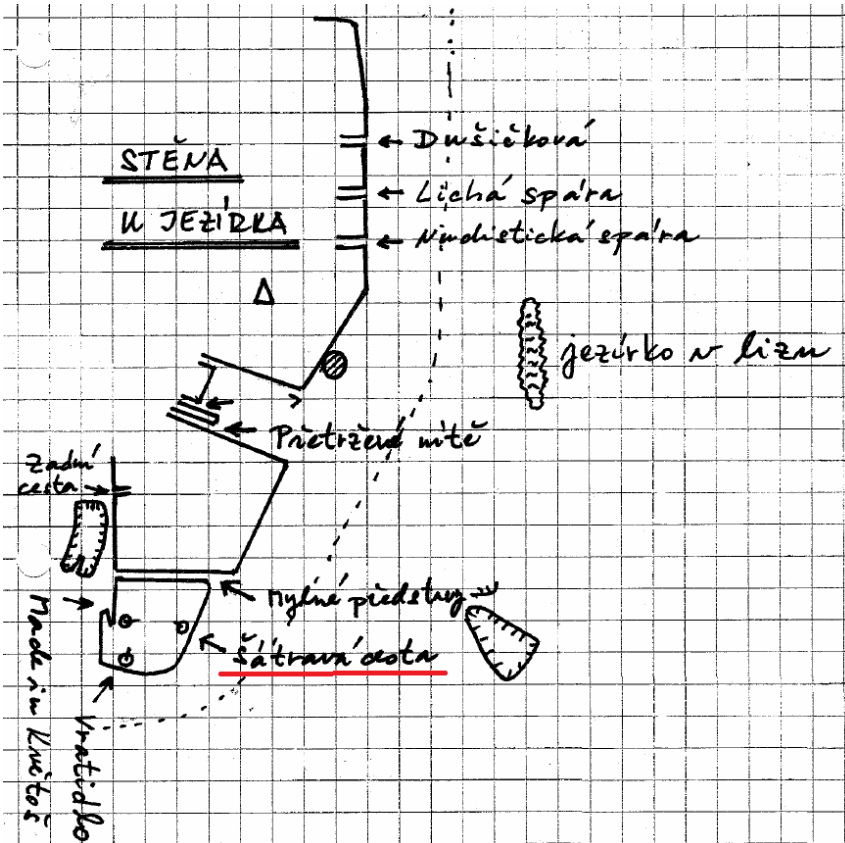 STĚNA
U JEZÍRKA
← Dušičková
← Lichá spára
← Nudistická spára
jezírko v lizu
← Přetržené nitě
Zadní
cesta →
Mylné představy
Šátravá cesta
Made in Květoš
Vratidlo